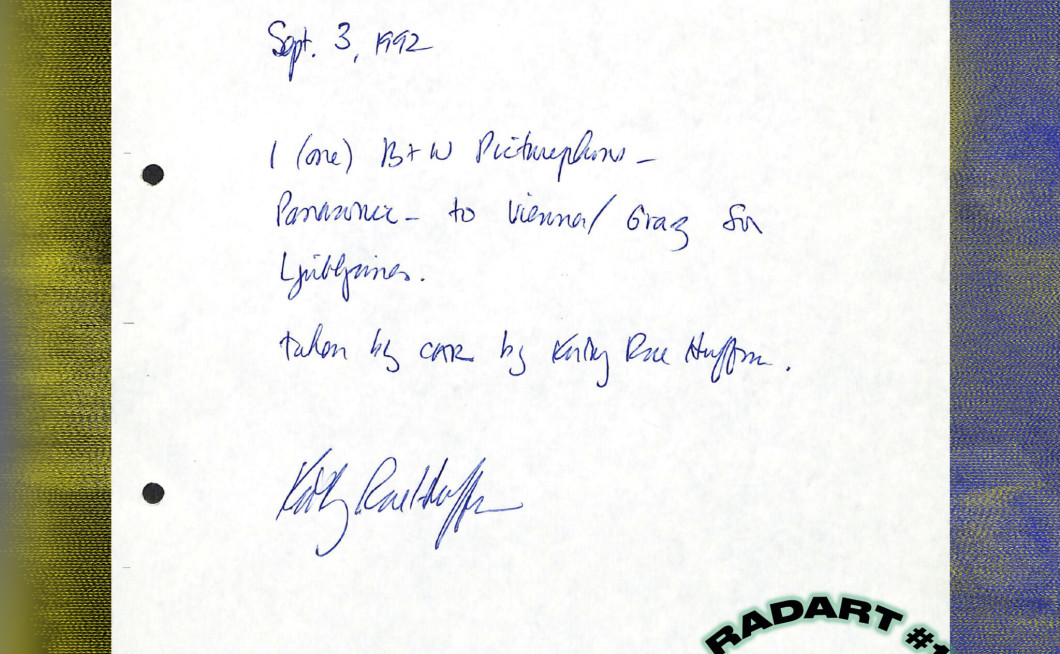 Sept. 3, 1992
1 (one) B+W Picturephone –
Panasonic – to Vienna/ Graz for
taken by car by Kathy Rae Huffman.
Kathy Rae Huffman
RADART #1